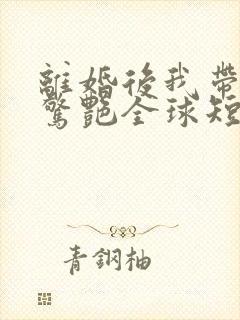 離婚後我帶
驚艷全球短
青鋼柚